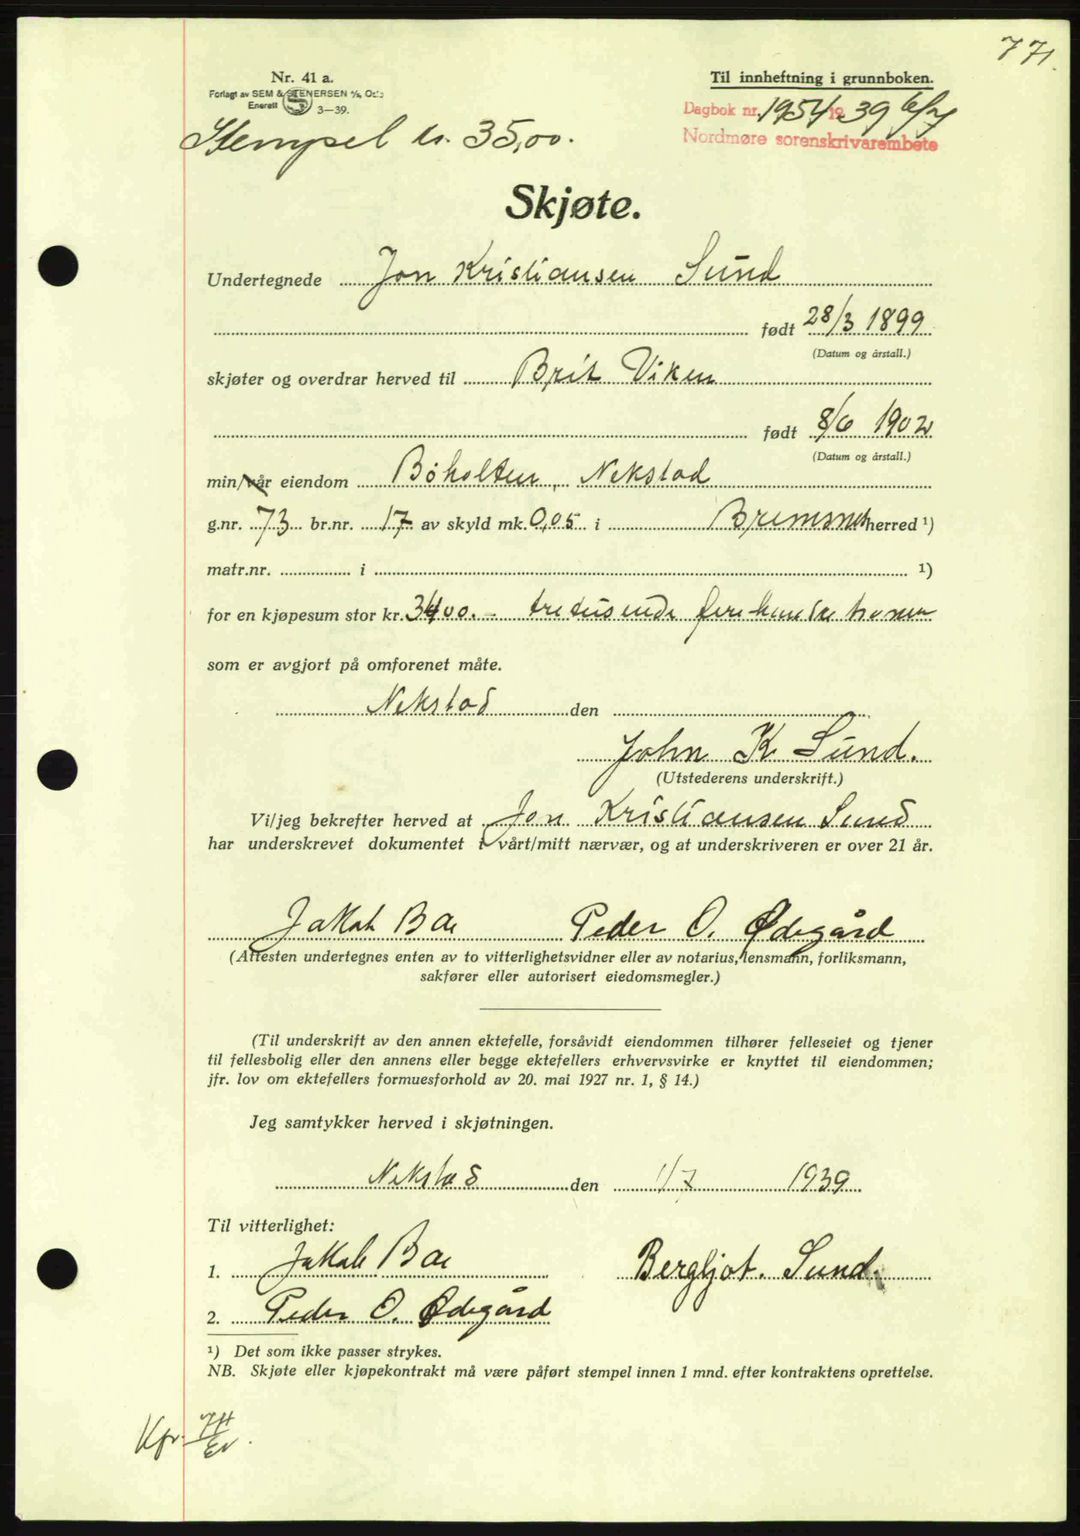 771.
Nr. 41 a.
Forlagt av SEM & STENERSEN A/S, Oslo
Enerett 3—39.
Til innheftning i grunnboken.
Dagbok nr. 1954 1939 6/7
Nordmøre sorenskrivarembete
Stempel kr. 35,00.
Skjøte.
Undertegnede Jon Kristiansen Sund
født 28/3 1899
(Datum og årstall.)
skjøter og overdrar herved til Brit Viken
født 8/6 1902
(Datum og årstall.)
min/vår eiendom Bøholten, Nekstad
g.nr. 73 br.nr. 17 av skyld mk. 0,05 i Bremsnes herred ¹)
matr.nr. i ¹)
for en kjøpesum stor kr. 3400.- tretusende firehundre kroner
som er avgjort på omforenet måte.
Nekstad den
John K Sund.
(Utstederens underskrift.)
Vi/jeg bekrefter herved at Jon Kristiansen Sund
har underskrevet dokumentet i vårt/mitt nærvær, og at underskriveren er over 21 år.
Jakob Bae Peder O. Ødegård
(Attesten undertegnes enten av to vitterlighetsvidner eller av notarius, lensmann, forliksmann,
sakfører eller autorisert eiedomsmegler.)
(Til underskrift av den annen ektefelle, forsåvidt eiendommen tilhører felleseiet og tjener
til fellesbolig eller den annens eller begge ektefellers erhvervsvirke er knyttet til eiendommen;
jfr. lov om ektefellers formuesforhold av 20. mai 1927 nr. 1, § 14.)
Jeg samtykker herved i skjøtningen.
Nekstad den 1/7 1939
Til vitterlighet:
1. Jakob Bae Bergljot. Sund.
2. Peder O. Ødegård
¹) Det som ikke passer strykes.
NB. Skjøte eller kjøpekontrakt må være påført stempel innen 1 mnd. efter kontraktens oprettelse.